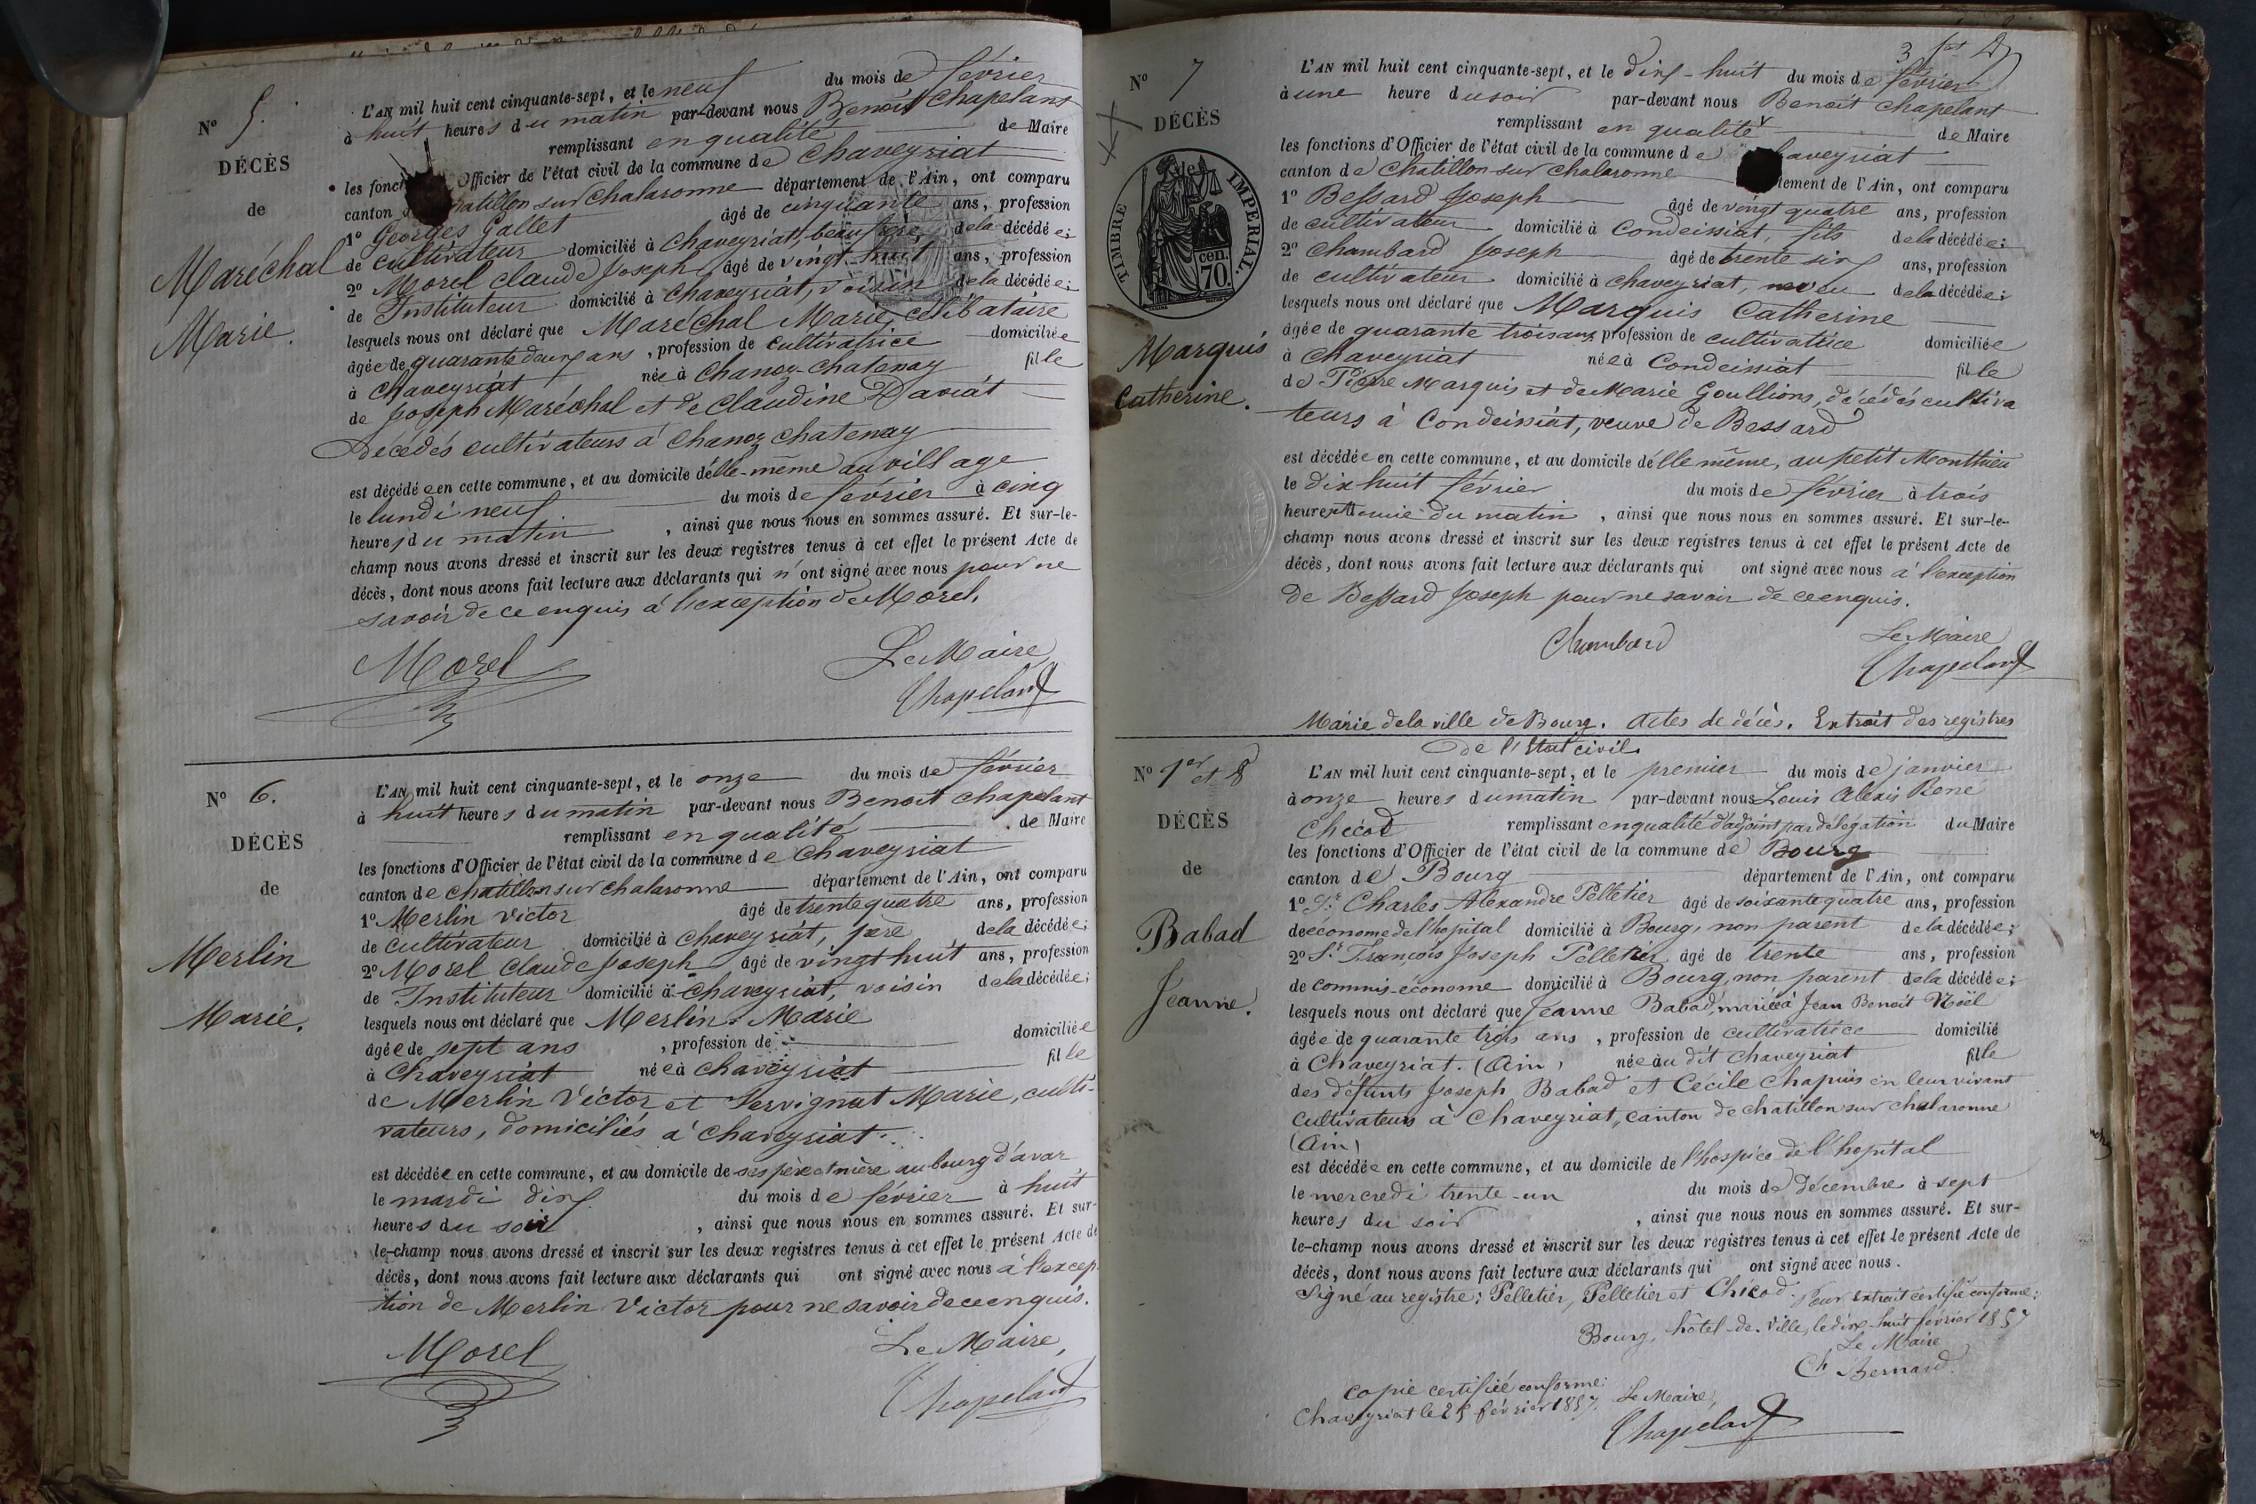 N° 5.
DÉCÈS
de
Maréchal
Marie.
L'AN mil huit cent cinquante-sept, et le neuf du mois de février
à huit heures du matin par-devant nous Benoît Chapelant
remplissant en qualité de Maire
les fonct Officier de l'état civil de la commune de Chaveyriat
canton d hatillon sur Chalaronne département de l'Ain, ont comparu
1° Georges Gallet âgé de cinquante ans, profession
de cultivateur domicilié à Chaveyriat, beau frère, de la décédée;
2° Morel Claude Joseph, âgé de vingt huit ans, profession
de Instituteur domicilié à Chaveyriat, voisin de la décédée;
lesquels nous ont déclaré que Maréchal Marie célibataire
âgée de quarante deux ans, profession de cultivatrice domiciliée
à Chaveyriat née à Chanoz-Chatenay fille
de Joseph Maréchal et de Claudine Daviat
Décédés cultivateurs à Chanoz Chatenay
est décédée en cette commune, et au domicile d'elle-même au village
le lundi neuf du mois de février à cinq
heures du matin, ainsi que nous nous en sommes assuré. Et sur-le-
champ nous avons dressé et inscrit sur les deux registres tenus à cet effet le présent Acte de
décès, dont nous avons fait lecture aux déclarants qui n'ont signé avec nous pour ne
savoir de ce enquis à l'exception de Morel.
Morel
Le Maire,
Chapelant
N° 6.
DÉCÈS
de
Merlin
Marie.
L'AN mil huit cent cinquante-sept, et le onze du mois de février
à huit heures du matin par-devant nous Benoît Chapelant
remplissant en qualité de Maire
les fonctions d'Officier de l'état civil de la commune de Chaveyriat
canton de Chatillon sur Chalaronne département de l'Ain, ont comparu
1° Merlin Victor âgé de trente quatre ans, profession
de cultivateur domicilié à Chaveyriat, père de la décédée;
2° Morel Claude Joseph âgé de vingt huit ans, profession
de Instituteur domicilié à Chaveyriat, voisin de la décédée;
lesquels nous ont déclaré que Merlin Marie
âgée de sept ans, profession de domiciliée
à Chaveyriat née à Chaveyriat fille
de Merlin Victor et Servignat Marie, culti-
vateurs, domiciliés à Chaveyriat.
est décédée en cette commune, et au domicile de ses père et mère au bourg d'avar
le mardi dix du mois de février à huit
heures du soir, ainsi que nous nous en sommes assuré. Et sur-
le-champ nous avons dressé et inscrit sur les deux registres tenus à cet effet le présent Acte de
décès, dont nous avons fait lecture aux déclarants qui ont signé avec nous à l'excep
tion de Merlin Victor pour ne savoir de ce enquis.
Morel
Le Maire,
Chapelant
N° 7
DÉCÈS
de
TIMBRE IMPÉRIAL.
70. cen.
Marquis
Catherine.
L'AN mil huit cent cinquante-sept, et le dix-huit du mois de février
à une heure du soir par-devant nous Benoît Chapelant
remplissant en qualité de Maire
les fonctions d'Officier de l'état civil de la commune de haveyriat
canton de Chatillon sur Chalaronne tement de l'Ain, ont comparu
1° Bessard Joseph âgé de vingt quatre ans, profession
de cultivateur domicilié à Condeissiat, fils de la décédée;
2° Chambard Joseph âgé de trente six ans, profession
de cultivateur domicilié à Chaveyriat, neveu de la décédée;
lesquels nous ont déclaré que Marquis Catherine
âgée de quarante trois ans, profession de cultivatrice domiciliée
à Chaveyriat née à Condeissiat fille
de Pierre Marquis et de Marie Goullions, décédés cultiva
teurs à Condeissiat, veuve de Bessard
est décédée en cette commune, et au domicile d'elle même, au petit Monthieu
le dix huit février du mois de février à trois
heures et demie du matin, ainsi que nous nous en sommes assuré. Et sur-le-
champ nous avons dressé et inscrit sur les deux registres tenus à cet effet le présent Acte de
décès, dont nous avons fait lecture aux déclarants qui ont signé avec nous à l'exception
de Bessard Joseph pour ne savoir de ce enquis.
Chambard
Le Maire
Chapelant
Mairie de la ville de Bourg. Actes de décès. Extrait des registres
de l'Etat civil.
N° 1er et 8
DÉCÈS
de
Babad
Jeanne.
L'AN mil huit cent cinquante-sept, et le premier du mois de janvier
à onze heures du matin par-devant nous Louis Alexis René
Chicod remplissant en qualité d'adjoint par délégation du Maire
les fonctions d'Officier de l'état civil de la commune de Bourg
canton de Bourg département de l'Ain, ont comparu
1° Sr Charles Alexandre Pelletier âgé de soixante quatre ans, profession
de économe de l'hopital domicilié à Bourg, non parent de la décédée;
2° Sr François Joseph Pelletier âgé de trente ans, profession
de commis-économe domicilié à Bourg, non parent de la décédée;
lesquels nous ont déclaré que Jeanne Babad, mariée à Jean Benoît Noël
âgée de quarante trois ans, profession de cultivatrice domicilié
à Chaveyriat. (Ain) née au dit Chaveyriat fille
des défunts Joseph Babad et Cécile Chapuis en leur vivant
cultivateurs à Chaveyriat, canton de Chatillon sur Chalaronne
(Ain)
est décédée en cette commune, et au domicile de l'hospice de l'hopital
le mercredi trente-un du mois de Décembre à sept
heures du soir, ainsi que nous nous en sommes assuré. Et sur-
le-champ nous avons dressé et inscrit sur les deux registres tenus à cet effet le présent Acte de
décès, dont nous avons fait lecture aux déclarants qui ont signé avec nous.
Signé au registre: Pelletier, Pelletier et Chicod. Pour extrait certifié conforme:
Bourg, hôtel-de-Ville, le dix-huit février 1857
Le Maire
Ch Bernard
Copie certifiée conforme:
Chaveyriat le 25 février 1857. Le Maire,
Chapelant